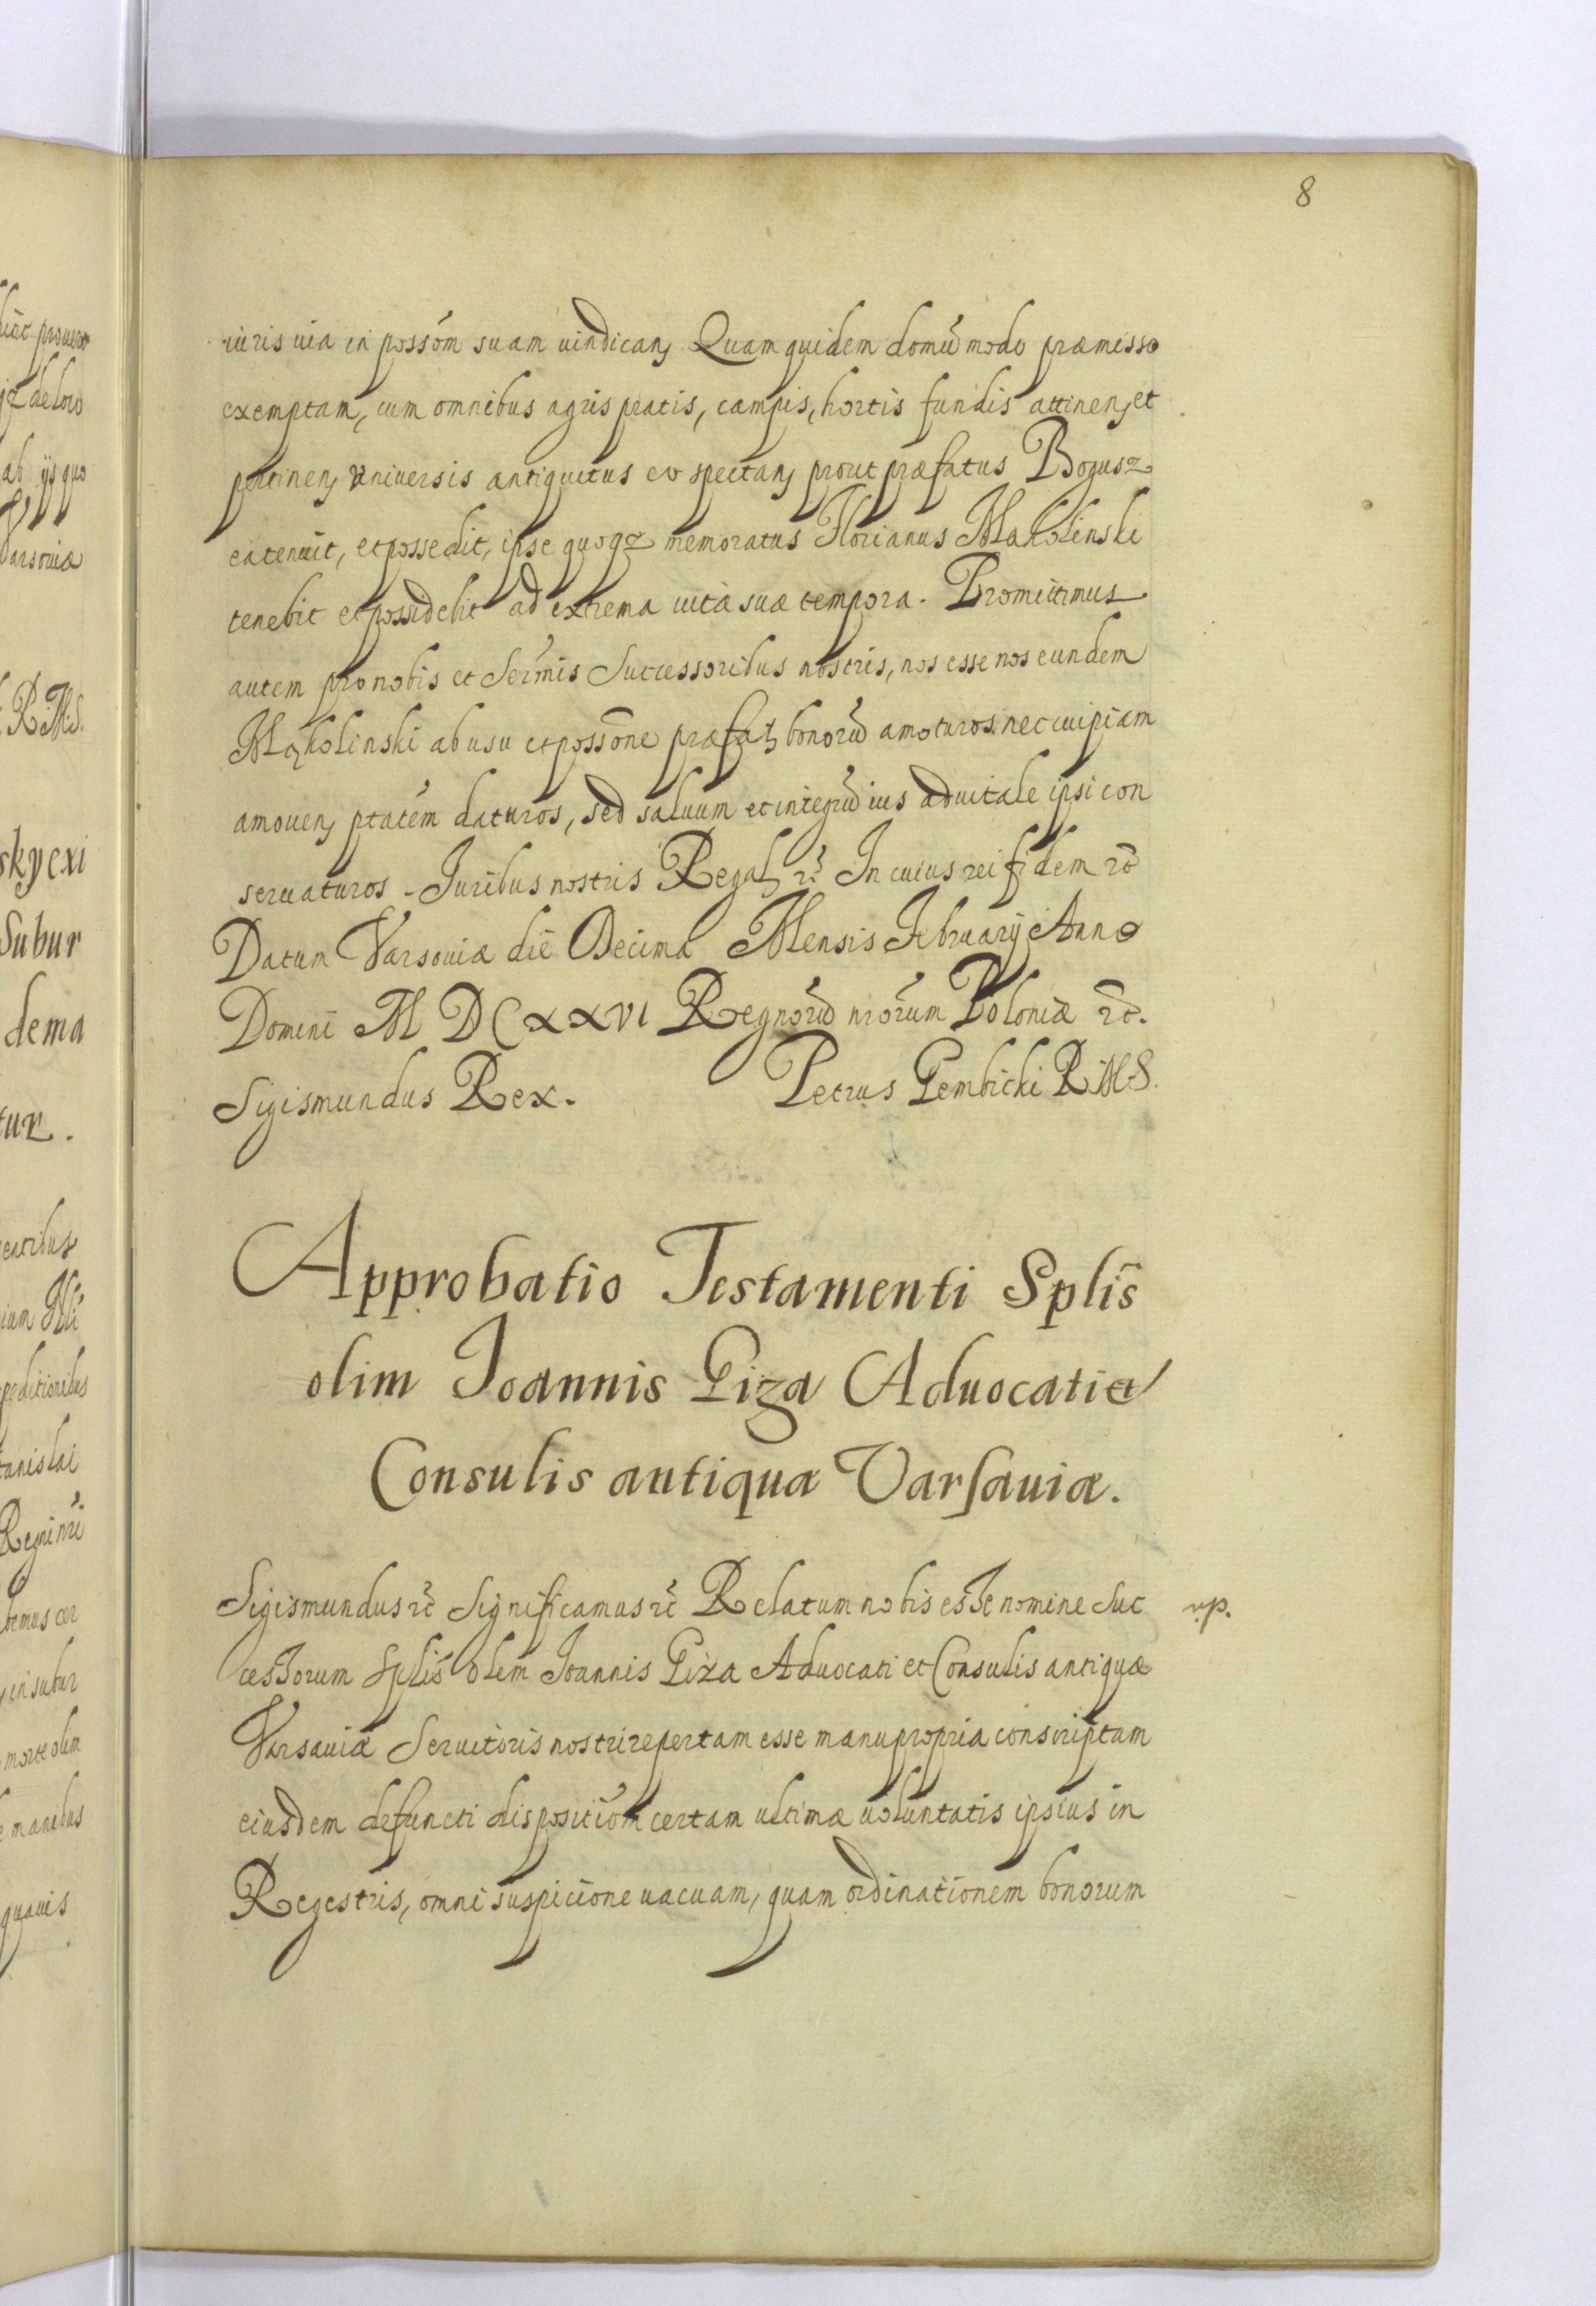 8
iuris uia in possōm suam uindicanț Quam quidem domū modo præmisso
exemptam, cum omnibus agris pratis, campis, hortis fundis attinenț et
pertinenț vniuersis antiquitus eo spectanț prout præfatus Bogusz
ea tenuit, et possedit, ipse quoqz memoratus Florianus Makolinski
tenebit et possidebit ad extrema uitæ suæ tempora. Promittimus
autem pro nobis et Serm̄is Successoribus nostris, nos esse nos eundem
Mąkolinski ab usu et possōne præfatț bonorū amoturos nec cuipiam
amouenț ptatēm daturos, sed saluum et integrū ius aduitale ipsi con
seruaturos - Juribus nostris Regalț rc̄ In cuius rei fidem rc̄
Datum Varsouiæ die Decima Mensis February Anno
Domini M D C XXVI Regnorū nrorum Poloniæ rc̄.
Sigismundus Rex. Petrus Gembicki R M S.
Approbatio Testamenti Splis̄
olim Joannis Giza Aduocati et
Consulis antiquæ Varsauiæ.
Sigismundus rc̄ Significamus rc̄ Relatum nobis esse nomine Suc
cessorum Splis̄ olim Joannis Giza Aduocati et Consulis antiquæ
Varsauiæ Seruitoris nostri repertam esse manu propria conscriptam
eiusdem defuncti dispositiōm certam ultimæ uoluntatis ipsius in
Regestris, omni suspicione uacuam, quam ordinationem bonorum